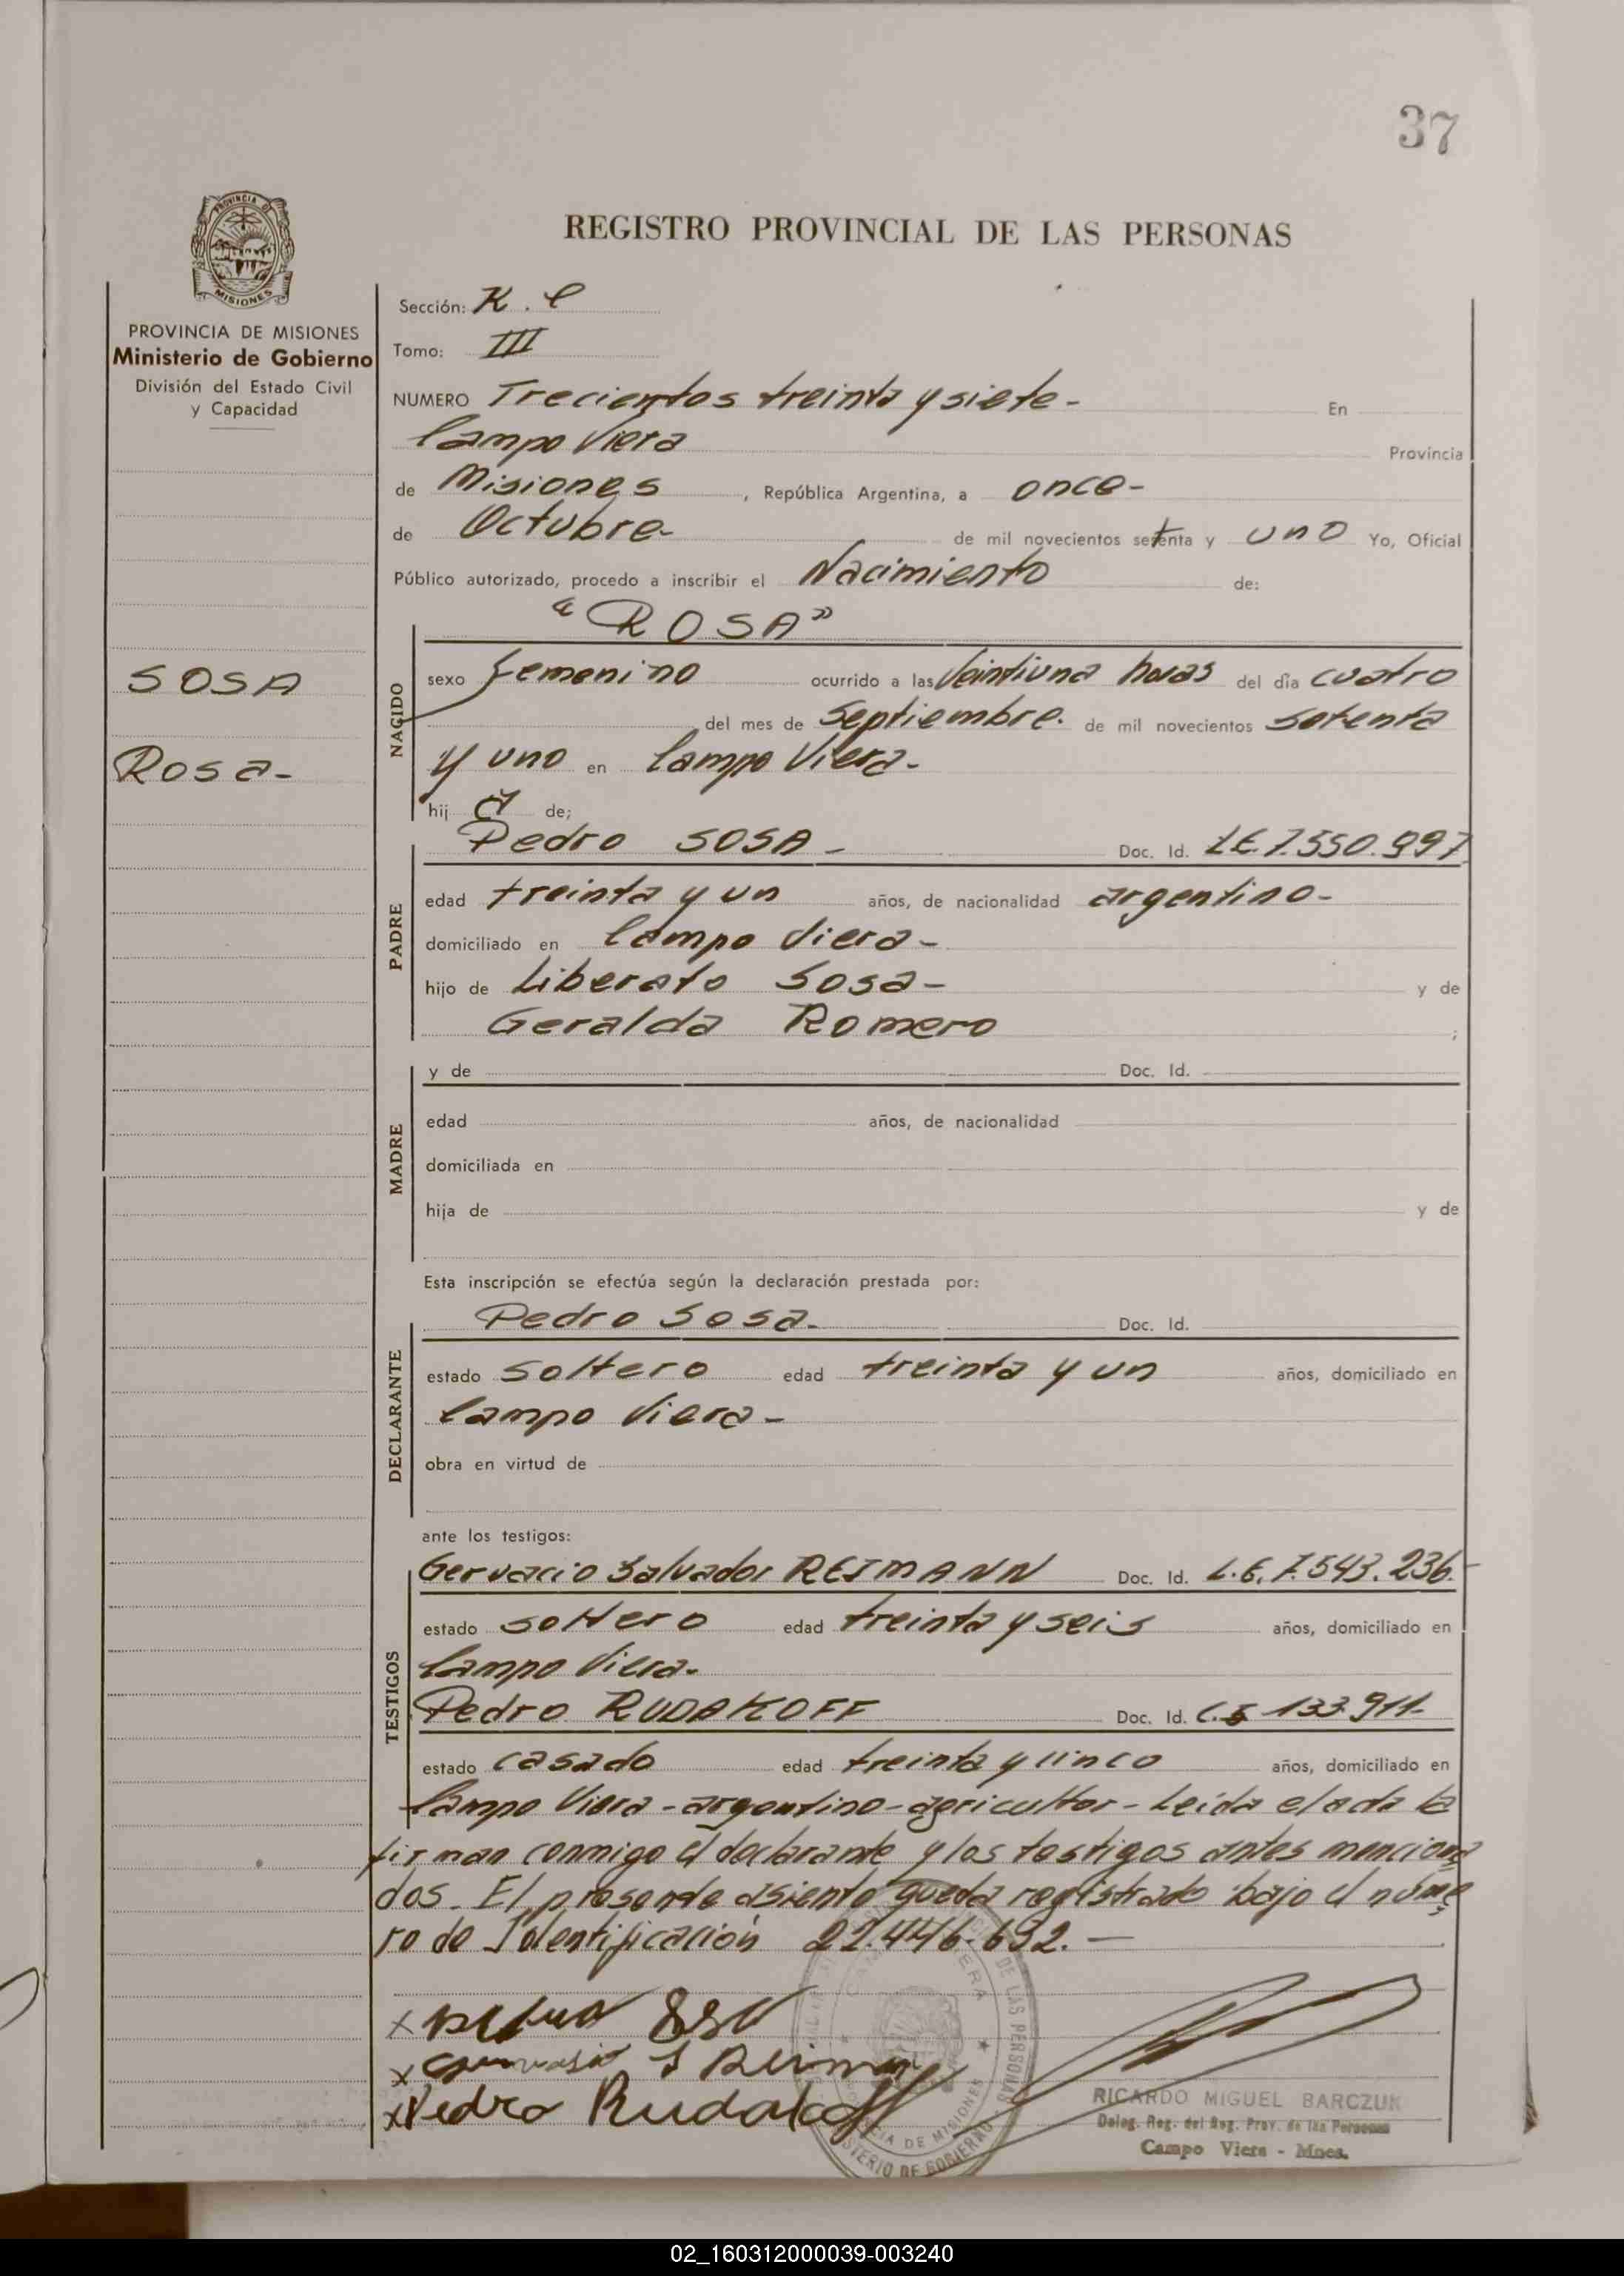 37
REGISTRO PROVINCIAL DE LAS PERSONAS
PROVINCIA DE MISIONES
Ministerio de Gobierno
División del Estado Civil
y Capacidad
SOSA
Rosa-
Sección: K. C
Tomo: III
NUMERO Trecientos treinta y siete- En
Campo Viera Provincia
de Misiones, República Argentina, a once-
de Octubre- de mil novecientos setenta y uno Yo, Oficial
Público autorizado, procedo a inscribir el Nacimiento de:
"ROSA"
NACIDO
sexo femenino ocurrido a las Veintiuna horas del día cuatro
del mes de Septiembre. de mil novecientos setenta
y uno en Campo Viera-
hij a de;
PADRE
Pedro SOSA- Doc. Id. L.E. 7.550.997
edad treinta y un años, de nacionalidad argentino-
domiciliado en Campo Viera-
hijo de Liberato Sosa- y de
Geralda Romero ;
MADRE
y de Doc. Id.
edad años, de nacionalidad
domiciliada en
hija de y de
Esta inscripción se efectúa según la declaración prestada por:
DECLARANTE
Pedro Sosa- Doc. Id.
estado soltero edad treinta y un años, domiciliado en
Campo Viera-
obra en virtud de
ante los testigos:
TESTIGOS
Gervacio Salvador REIMANN Doc. Id. L.E. 7.543.236-
estado soltero edad treinta y seis años, domiciliado en
Campo Viera-
Pedro RUDAKOFF Doc. Id. C.I. 133.911-
estado casado edad treinta y cinco años, domiciliado en
Campo Viera-argentino-agricultor-Leída el acta la
firman conmigo el declarante y los testigos antes menciona
dos. El presente asiento queda registrado bajo el núme
ro de Identificación 22.446.632.—
x Pedro Sosa
x Gervasio S Reiman
x Pedro Rudakoff
DE LAS PERSONAS
PROVINCIA DE MISIONES
MINISTERIO DE GOBIERNO
RICARDO MIGUEL BARCZUK
Deleg. Reg. del Reg. Prov. de las Personas
Campo Viera - Mnes.
02_160312000039-003240